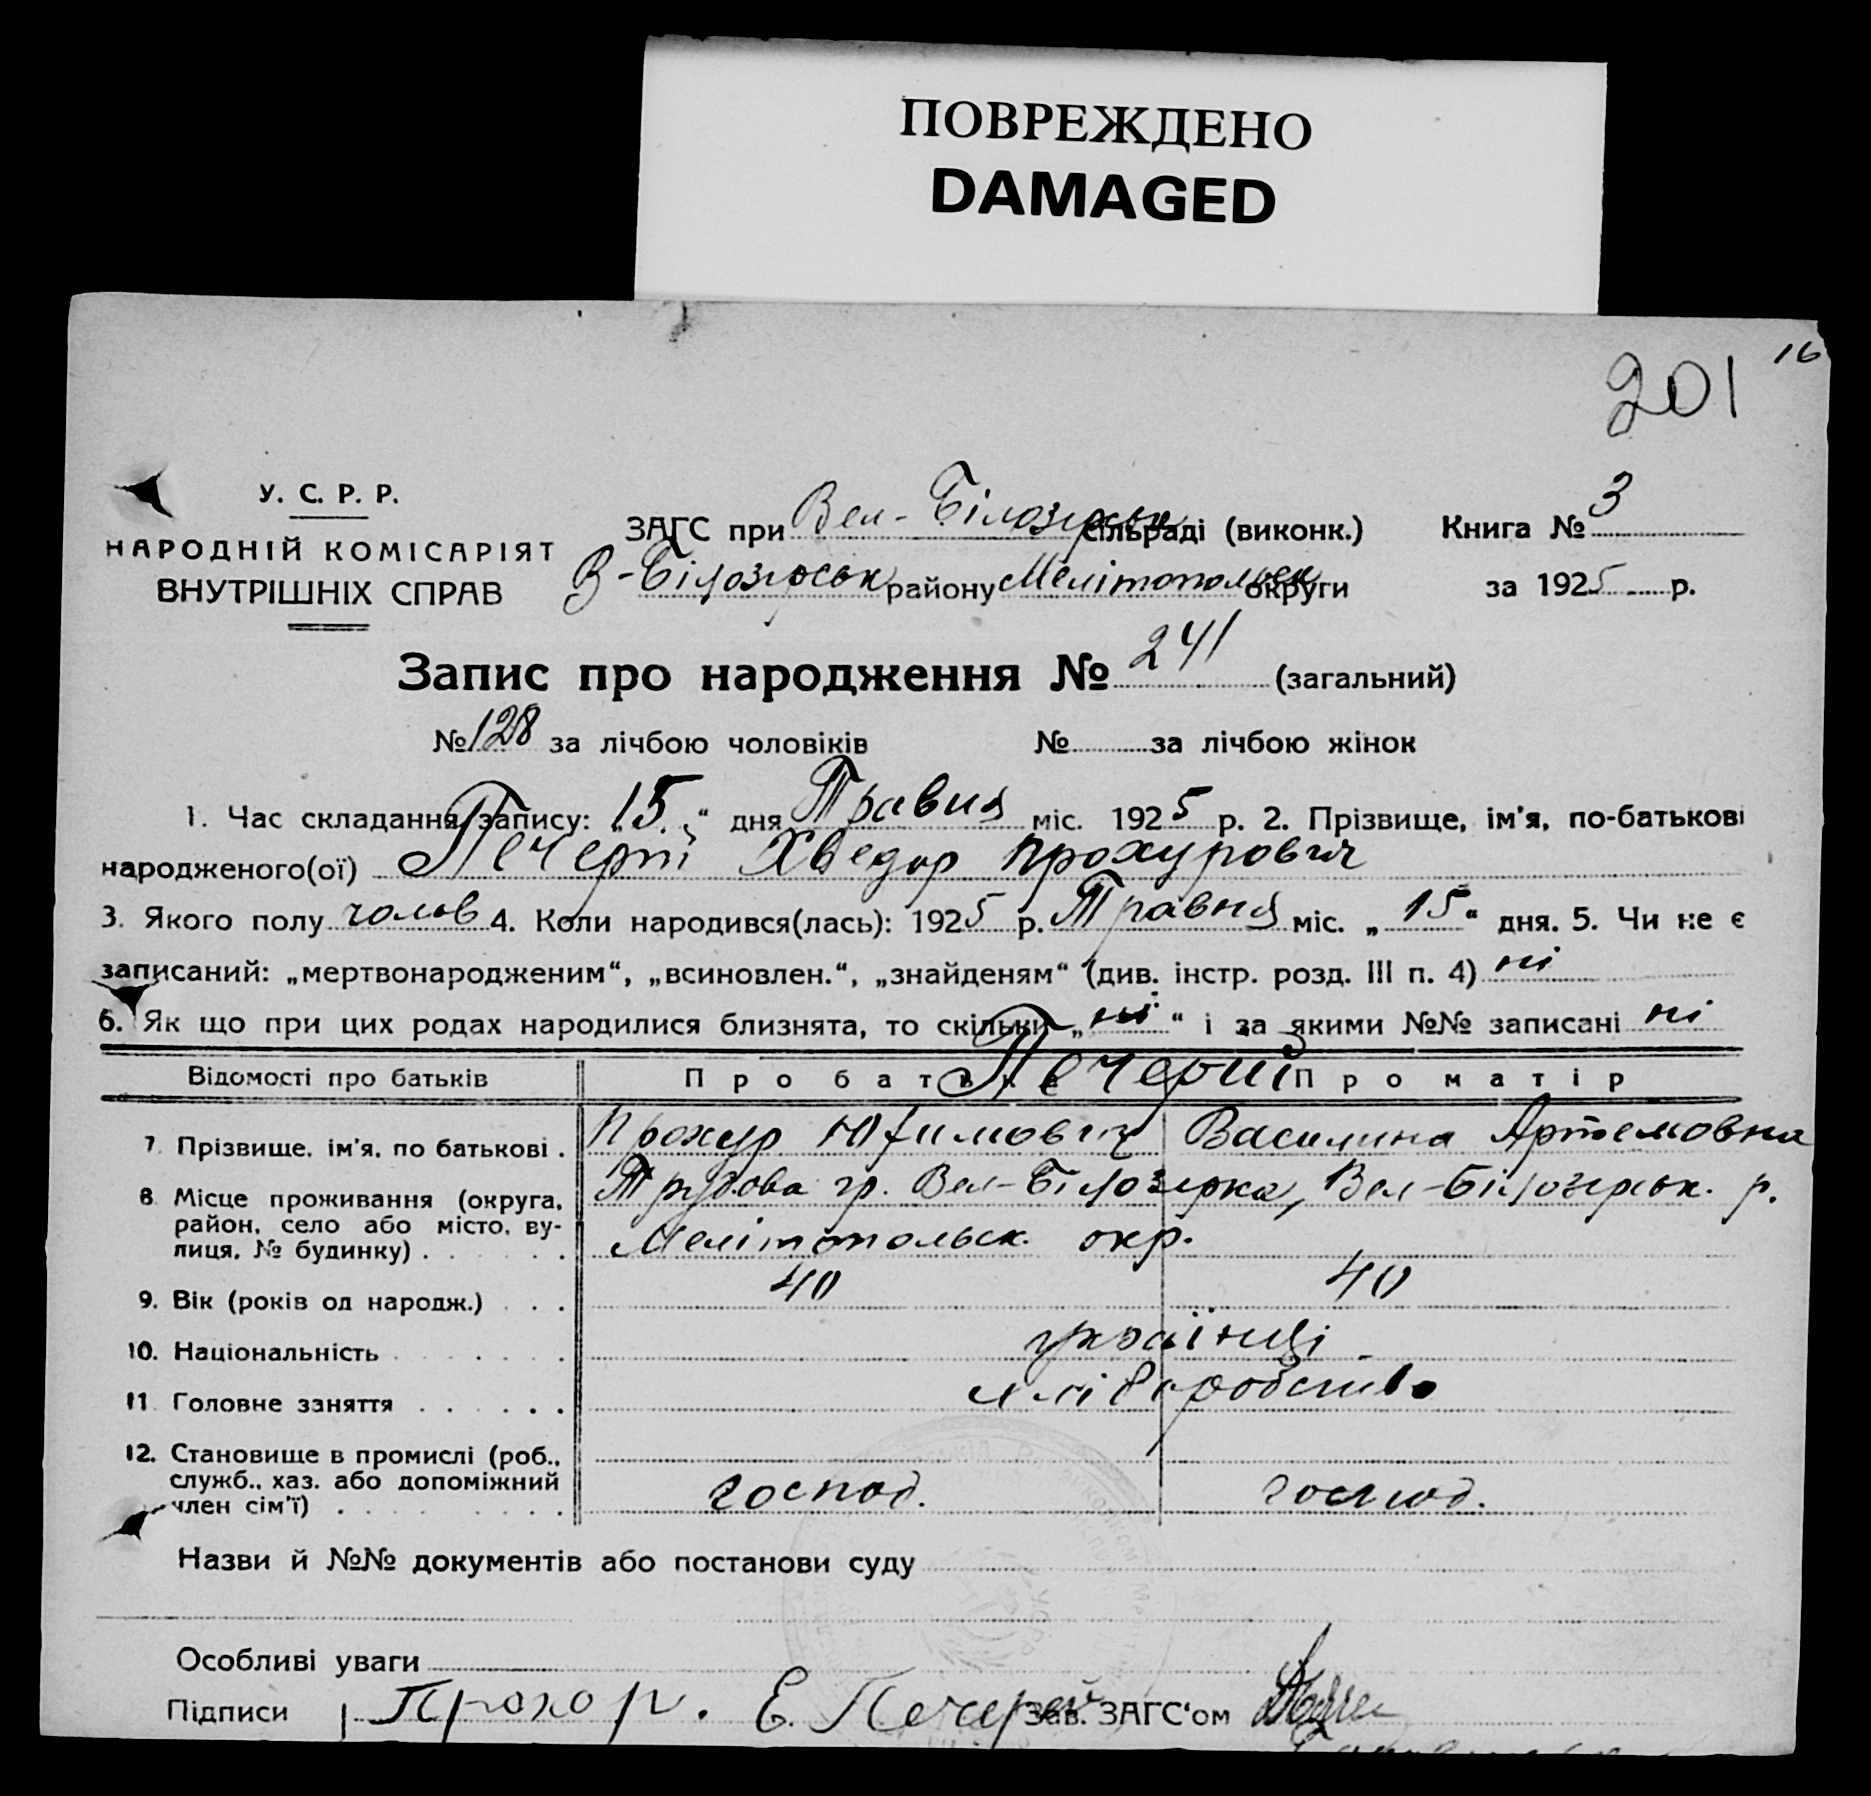 ПОВРЕЖДЕНО
DAMAGED
16
201
У. С. Р. Р.
НАРОДНІЙ КОМІСАРІЯТ
ВНУТРІШНІХ СПРАВ
ЗАГС при Вел-Білозірськ сільраді (виконк.) Книга № 3
В-Білозірськ району Мелітопольськ округи за 1925 р.
Запис про народження № 241 (загальний)
№ 128 за лічбою чоловіків № за лічбою жінок
1. Час складання запису: „15“ дня Травня міс. 1925 р. 2. Прізвище, ім'я, по-батькові
народженого(ої) Хведор Прохурович
3. Якого полу чолов 4. Коли народився(лась): 1925 р. Травня міс. „15“ дня. 5. Чи не є
записаний: „мертвонародженим“, „всиновлен.“, „знайденям“ (див. інстр. розд. III п. 4) ні
6. Як що при цих родах народилися близнята, то скільки „ні“ і за якими №№ записані ні
Відомості про батьків Про батька Про матір
Печериї
7. Прізвище, ім'я, по батькові . Прохур Юхимович Василина Артемовна
8. Місце проживання (округа, район, село або місто, вулиця, № будинку) . Трудова гр. Вел-Білозірка, Вел-Білозірськ. р.
Мелітопольськ. окр.
9. Вік (років од народж.) . . . 40 40
10. Національність українці
11. Головне заняття хліборобство
12. Становище в промислі (роб.,
служб., хаз. або допоміжний
член сім'ї) господ. господ.
Назви й №№ документів або постанови суду
Особливі уваги
Підписи Прохор. Е. Печерей Зав. ЗАГС'ом